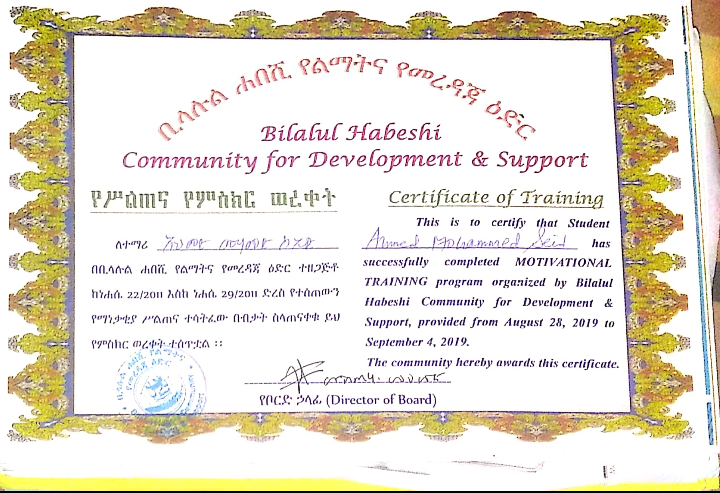 ቢላሉል ሐበሺ የልማትና የመረዳጃ ዕድር
Bilalul Habeshi
Community for Development & Support
የሥልጠና የምስክር ወረቀት
ለተማሪ አህመድ መሃመድ ሰይድ
በቢላሉል ሐበሺ የልማትና የመረዳጃ ዕድር ተዘጋጅቶ
ከነሐሴ 22/2011 እስከ ነሐሴ 29/2011 ድረስ የተሰጠውን
የማነቃቂያ ሥልጠና ተሳትፈው በብቃት ስላጠናቀቁ ይህ
የምስክር ወረቀት ተሰጥቷል ፡፡
Certificate of Training
This is to certify that Student
Ahmed Mohammed Seid has
successfully completed MOTIVATIONAL
TRAINING program organized by Bilalul
Habeshi Community for Development &
Support, provided from August 28, 2019 to
September 4, 2019.
The community hereby awards this certificate.
የቦርድ ኃላፊ (Director of Board)